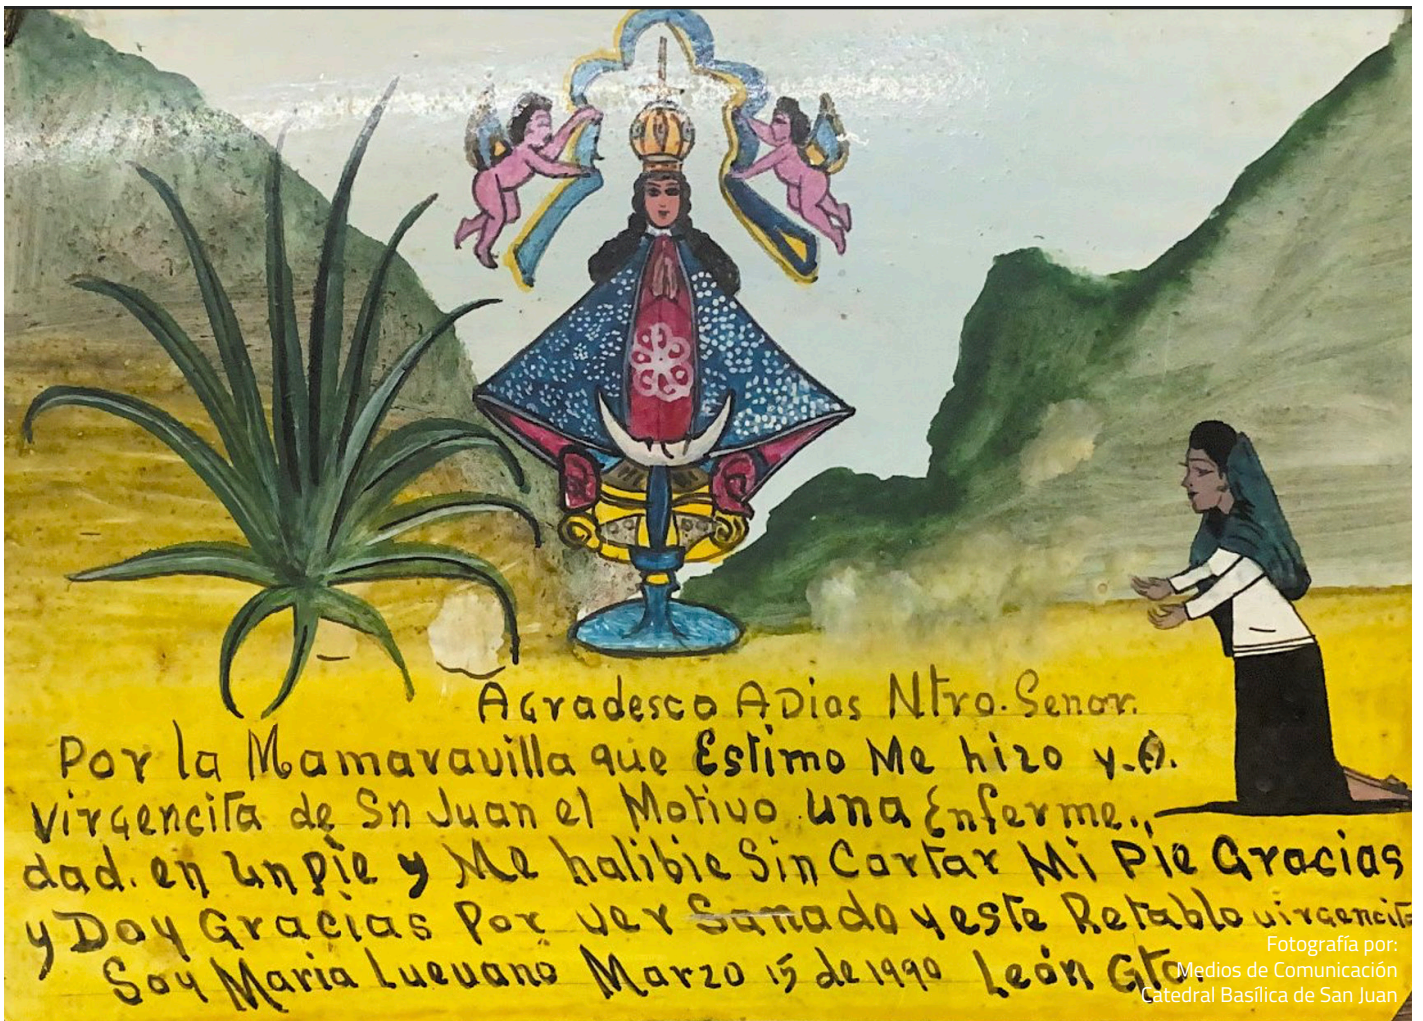 Agradesco A Dios Ntro. Senor.
Por la Mamaravilla que Estimo Me hizo y.A.
Virgencita de Sn Juan el Motivo una Enferme.,
dad. en un pie y Me halibie Sin Cortar Mi Pie Gracias
y Doy Gracias Por ver Sanado y este Retablo virgencita
Soy Maria Luevano Marzo 15 de 1990 León Gto.
Fotografía por:
Medios de Comunicación
Catedral Basílica de San Juan